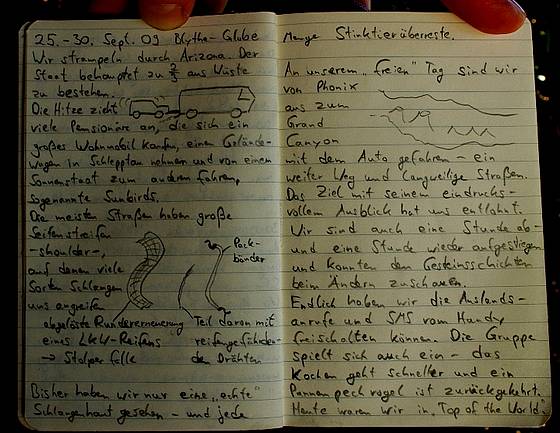 25.-30. Sept. 09 Blythe-Globe
Wir strampeln durch Arizona. Der
Staat behauptet zu 2/3 aus Wüste
zu bestehen.
Die Hitze zieht
viele Pensionäre an, die sich ein
großes Wohnmobil kaufen, einen Gelände-
wagen in Schlepptau nehmen und von einem
Sonnenstaat zum anderen fahren,
sogenannte Sunbirds.
Die meisten Straßen haben große
Seifenstreifen
-shoulder-,
auf denen viele
Sorten Schlangen
uns angreifen
Pack-
bänder
abgelöste Runderneuerung
eines LKW-Reifens
→ Stolperfalle
Teil davon mit
reifengefährden-
den Drähten
Bisher haben wir nur eine „echte"
Schlangenhaut gesehen - und jede
Menge Stinktierüberreste.
An unserem „freien" Tag sind wir
von Phönix
aus zum
Grand
Canyon
mit dem Auto gefahren - ein
weiter Weg und langweilige Straßen.
Das Ziel mit seinem eindrucks-
vollem Ausblick hat uns entlohnt.
Wir sind auch eine Stunde ab-
und eine Stunde wieder aufgestiegen
und konnten den Gesteinsschichten
beim Ändern zuschauen.
Endlich haben wir die Auslands-
anrufe und SMS vom Handy
freischalten können. Die Gruppe
spielt sich auch ein - das
Kochen geht schneller und ein
Pannenpechvogel ist zurückgekehrt.
Heute waren wir in „Top of the World".